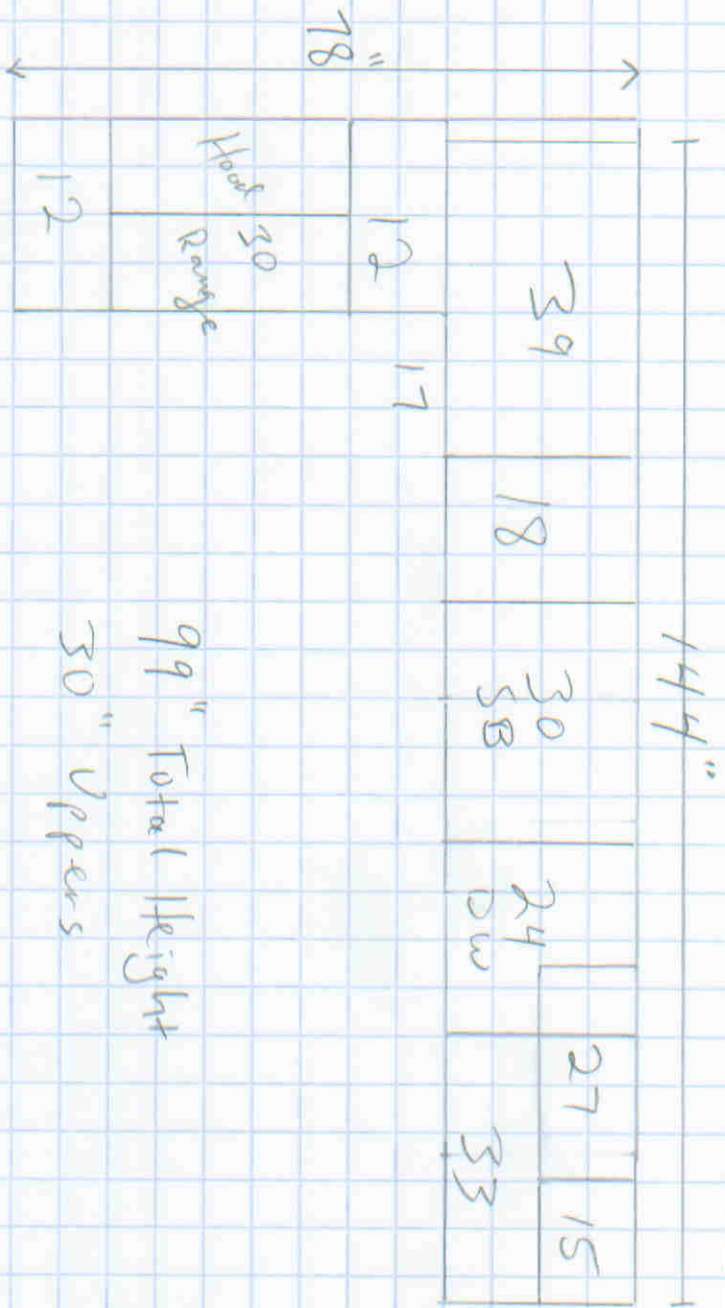 144"
78"
39
18
30
SB
24
DW
27
15
33
12
17
Hood
30
Range
12
99" Total Height
30" Uppers